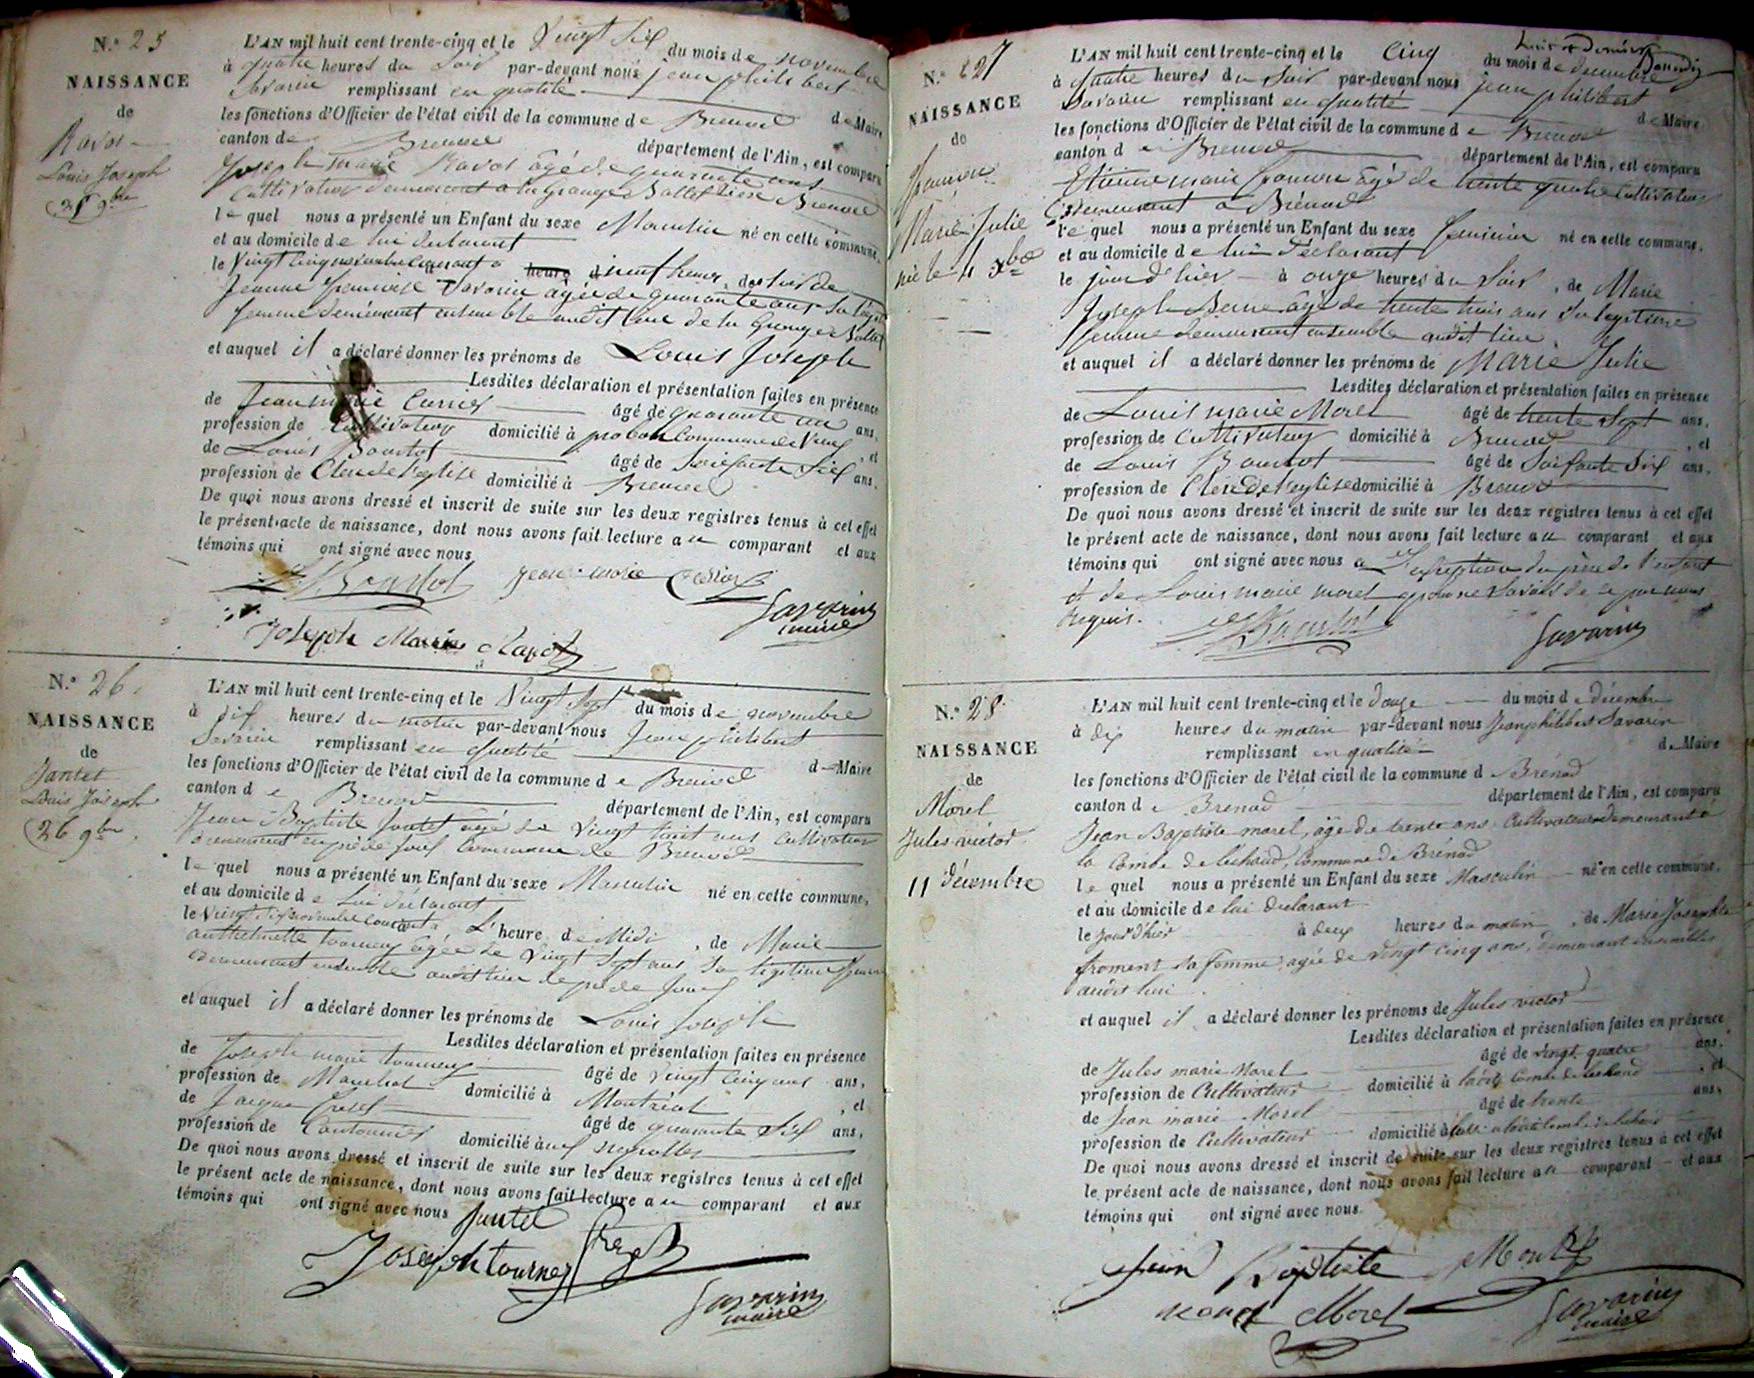 N.° 25
NAISSANCE
de
Ravot
Louis Joseph
25 9bre
L'AN mil huit cent trente-cinq et le Vingt Six du mois de novembre
à quatre heures du Soir par-devant nous jean philibert
Savarin remplissant en qualité
les fonctions d'Officier de l'état civil de la commune de Brenod de Maire
canton de Brenod département de l'Ain, est comparu
Joseph Marie Ravot âgé de quarante ans
Cultivateur demeurant a la grange Brenod
le quel nous a présenté un Enfant du sexe Masculin né en cette commune,
et au domicile de lui déclarant
le Vingt Cinq novembre Courant a heure neuf heures du Soir de
Jeanne françoise Savarin âgée de quarante ans Sa légit
femme demeurant ensemble audit lieu de la Grange
et auquel il a déclaré donner les prénoms de Louis Joseph
Lesdites déclaration et présentation faites en présence
de Jean marie âgé de quarante un ans,
profession de Cultivateur domicilié à Commune de , et
de Louis Bourdot âgé de Soixante Six ans.
profession de Clerc de l'eglise domicilié à Brenod
De quoi nous avons dressé et inscrit de suite sur les deux registres tenus à cet effet
le présent acte de naissance, dont nous avons fait lecture au comparant et aux
témoins qui ont signé avec nous
Bourdot Jean marie
Savarin
maire
Joseph Marie Ravot
N.° 26
NAISSANCE
de
Jantet
Louis Joseph
26 9bre.
L'AN mil huit cent trente-cinq et le Vingt Sept du mois de novembre
à dix heures du matin par-devant nous Jean philibert
Savarin remplissant en qualité
les fonctions d'Officier de l'état civil de la commune de Brenod de Maire
canton de Brenod département de l'Ain, est comparu
Jean Baptiste Jantet âgé de Vingt huit ans Cultivateur
demeurant Commune de Brenod
le quel nous a présenté un Enfant du sexe Masculin né en cette commune,
et au domicile de Lui déclarant
le Vingt Six novembre Courant, L'heure de Midi, de Marie
anthelmette tournery âgée de Vingt Sept ans Sa légitime femme
demeurant ensemble audit lieu de
et auquel il a déclaré donner les prénoms de Louis Joseph
Lesdites déclaration et présentation faites en présence
de Joseph marie âgé de Vingt Cinq ans ans,
profession de Marechal domicilié à Montreal , et
de Jacque âgé de quarante Six ans,
profession de Cantonnier domicilié à neyrolles
De quoi nous avons dressé et inscrit de suite sur les deux registres tenus à cet effet
le présent acte de naissance, dont nous avons fait lecture au comparant et aux
témoins qui ont signé avec nous Jantet
Joseph
Savarin
maire
N.° 27
NAISSANCE
de
Marie Julie
née le 4 Xbre
L'AN mil huit cent trente-cinq et le Cinq du mois de decembre
à quatre heures du Soir par-devant nous jean philibert
Savarin remplissant en qualité
les fonctions d'Officier de l'état civil de la commune de Brenod de Maire
canton de Brenod département de l'Ain, est comparu
Etienne marie âgé de trente quatre Cultivateur
demeurant a Brénod
le quel nous a présenté un Enfant du sexe féminin né en cette commune,
et au domicile de lui Déclarant
le jour d'hier à onze heures du Soir, de Marie
Joseph âgée de trente trois ans Sa légitime
femme demeurant ensemble audit lieu
et auquel il a déclaré donner les prénoms de Marie Julie
Lesdites déclaration et présentation faites en présence
de Louis marie Morel âgé de trente Sept ans,
profession de Cultivateur domicilié à Brenod , et
de Louis Bourdot âgé de Soixante Six ans,
profession de Clerc de l'eglise domicilié à Brenod
De quoi nous avons dressé et inscrit de suite sur les deux registres tenus à cet effet
le présent acte de naissance, dont nous avons fait lecture au comparant et aux
témoins qui ont signé avec nous a L'exception du père de l'enfant
et de Louis marie morel pour ne Savoir de ce par nous
Requis.
Bourdot Savarin
N.° 28
NAISSANCE
de
Morel
Jules victor
11 décembre
L'AN mil huit cent trente-cinq et le douze du mois de décembre
à dix heures du matin par-devant nous Jean philibert Savarin
remplissant en qualité de Maire
les fonctions d'Officier de l'état civil de la commune d Brénod
canton de Brenod département de l'Ain, est comparu
Jean Baptiste morel, âgé de trente ans Cultivateur demeurant à
la Combe de Léchaud, Commune de Brénod
le quel nous a présenté un Enfant du sexe Masculin né en cette commune,
et au domicile de lui déclarant
le jour d'hier à deux heures du matin, de Marie Josephte
froment sa femme, agée de vingt cinq ans, demeurant ensemble
audit lieu.
et auquel il a déclaré donner les prénoms de Jules victor
Lesdites déclaration et présentation faites en présence
de Jules marie Morel âgé de vingt quatre ans,
profession de Cultivateur domicilié à Combe de Léchaud , et
de Jean marie Morel âgé de trente ans,
profession de Cultivateur domicilié à
De quoi nous avons dressé et inscrit de suite sur les deux registres tenus à cet effet
le présent acte de naissance, dont nous avons fait lecture au comparant et aux
témoins qui ont signé avec nous.
Jean Baptiste Morel
Morel
Savarin
maire